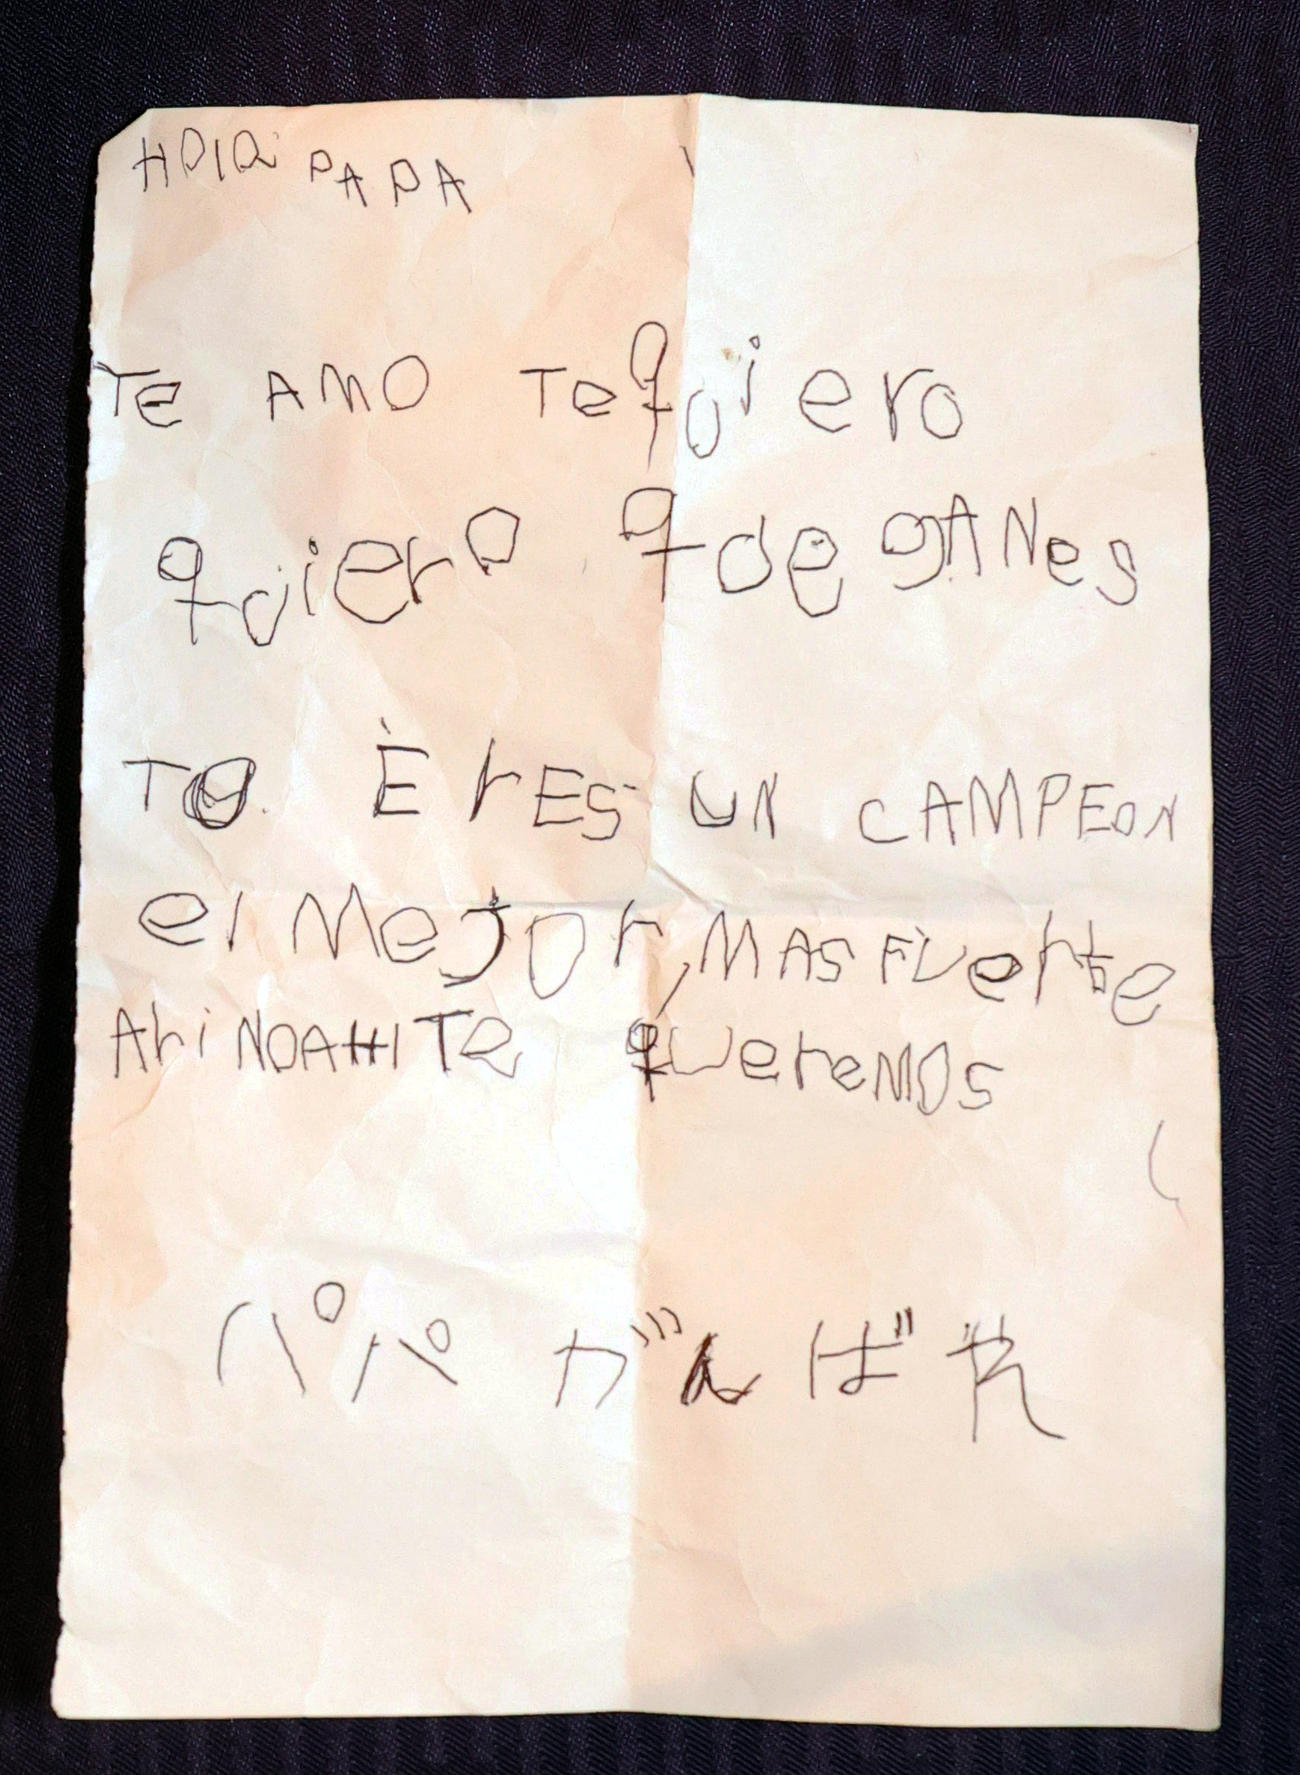 HOlA PAPA
Te AMO Tequiero
quiero que gANes
TU ÈrES UN CAMPEON
el Mejor, MAS FUerte
Ari NOAHI Te queremos
パパ がんばや